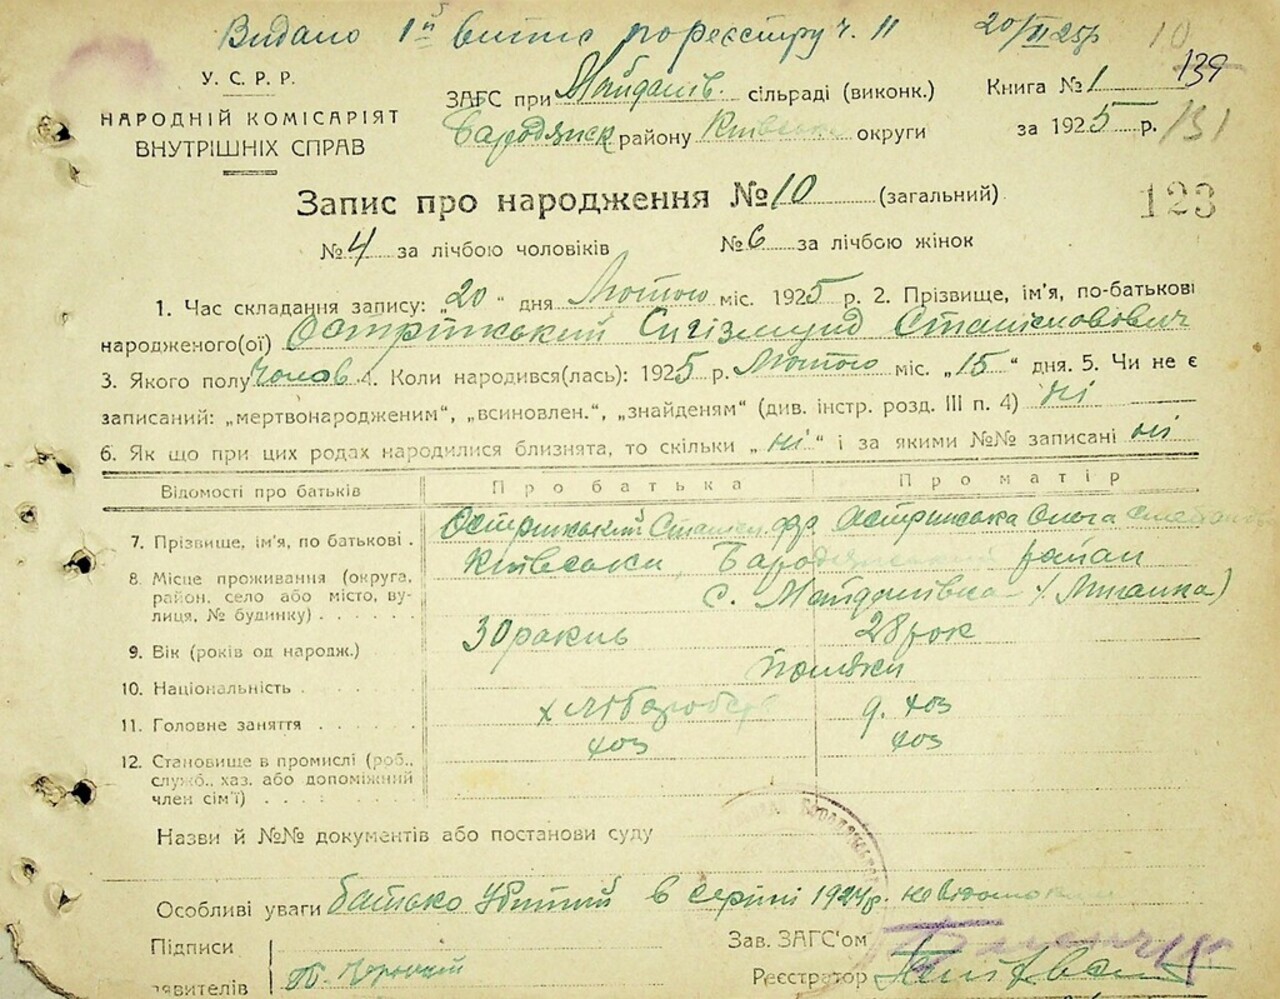 Видано 1й витяг по реєстру ч. 11 20/II 25р 10
139
У.С.Р.Р.
НАРОДНІЙ КОМІСАРІЯТ
ВНУТРІШНІХ СПРАВ
ЗАГС при Майданів. сільраді (виконк.) Книга № 1
Бародянск району Київськ округи за 1925 р. 131
Запис про народження № 10 (загальний) 123
№ 4 за лічбою чоловіків № 6 за лічбою жінок
1. Час складання запису: „20“ дня Лютого міс. 1925 р. 2. Прізвище, ім'я, по-батькові
народженого(ої) Остринський Сигізмунд Станіславович
3. Якого полу Чолов. 4. Коли народився(лась): 1925 р. Лютого міс. „15“ дня. 5. Чи не є
записаний: „мертвонародженим“, „всиновлен.“, „знайденям“ (див. інстр. розд. III п. 4) ні
6. Як що при цих родах народилися близнята, то скільки „ні“ і за якими №№ записані ні
Відомості про батьків Про батька Про матір
7. Прізвище, ім'я, по батькові . Остринський Остринська Ольга
8. Місце проживання (округа, район, село або місто, вулиця, № будинку) Київськи, район
с. Майданівка
9. Вік (років од народж.) 30 28 рок
10. Національність поляки
11. Головне заняття хлібороб д. хоз
12. Становище в промислі (роб., хоз хоз
служб., хаз. або допоміжний
член сім'ї)
Назви й №№ документів або постанови суду
Особливі уваги батько убитий в серпні 1924 р.
Підписи Зав. ЗАГС'ом
явителів Реєстратор